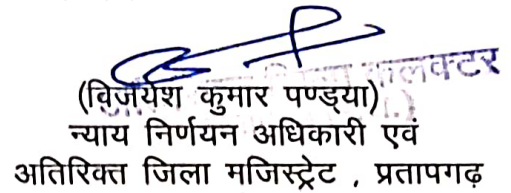 कलक्टर
(विजयेश कुमार पण्ड्या)
न्याय निर्णयन अधिकारी एवं
अतिरिक्त जिला मजिस्ट्रेट , प्रतापगढ़